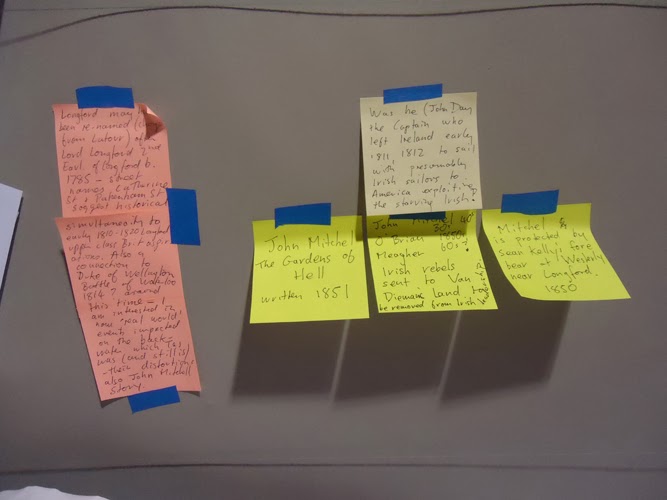 Longford may
been re-named (
from Latour) after
Lord Longford
Earl of Longford b.
1785 - street
names Catherine
St & Pakenham St
suggest historical
simultaneity to
early 1810-1820
upper class Brit
Also a
connection to
Duke of Wellington
Battle of Waterloo
1814? Around
this time - I
am interested in
how 'real world'
events impacted
on the back-
water which
was (and still is)
- their distortions
also John Mitchell
story.
Was he (John Day
the Captain who
left Ireland early
1811, 1812 to sail
with presumably
Irish sailors to
America exploiting
the starving Irish?
John Mitchel
The Gardens of
Hell
written 1851
John Mitchel
O'Brian
Meagher
Irish rebels
sent to Van
Diemans Land to
be removed from Irish
Mitchel
is protected by
Sean Kelly's fore
bear at Westbury
near Longford.
1850